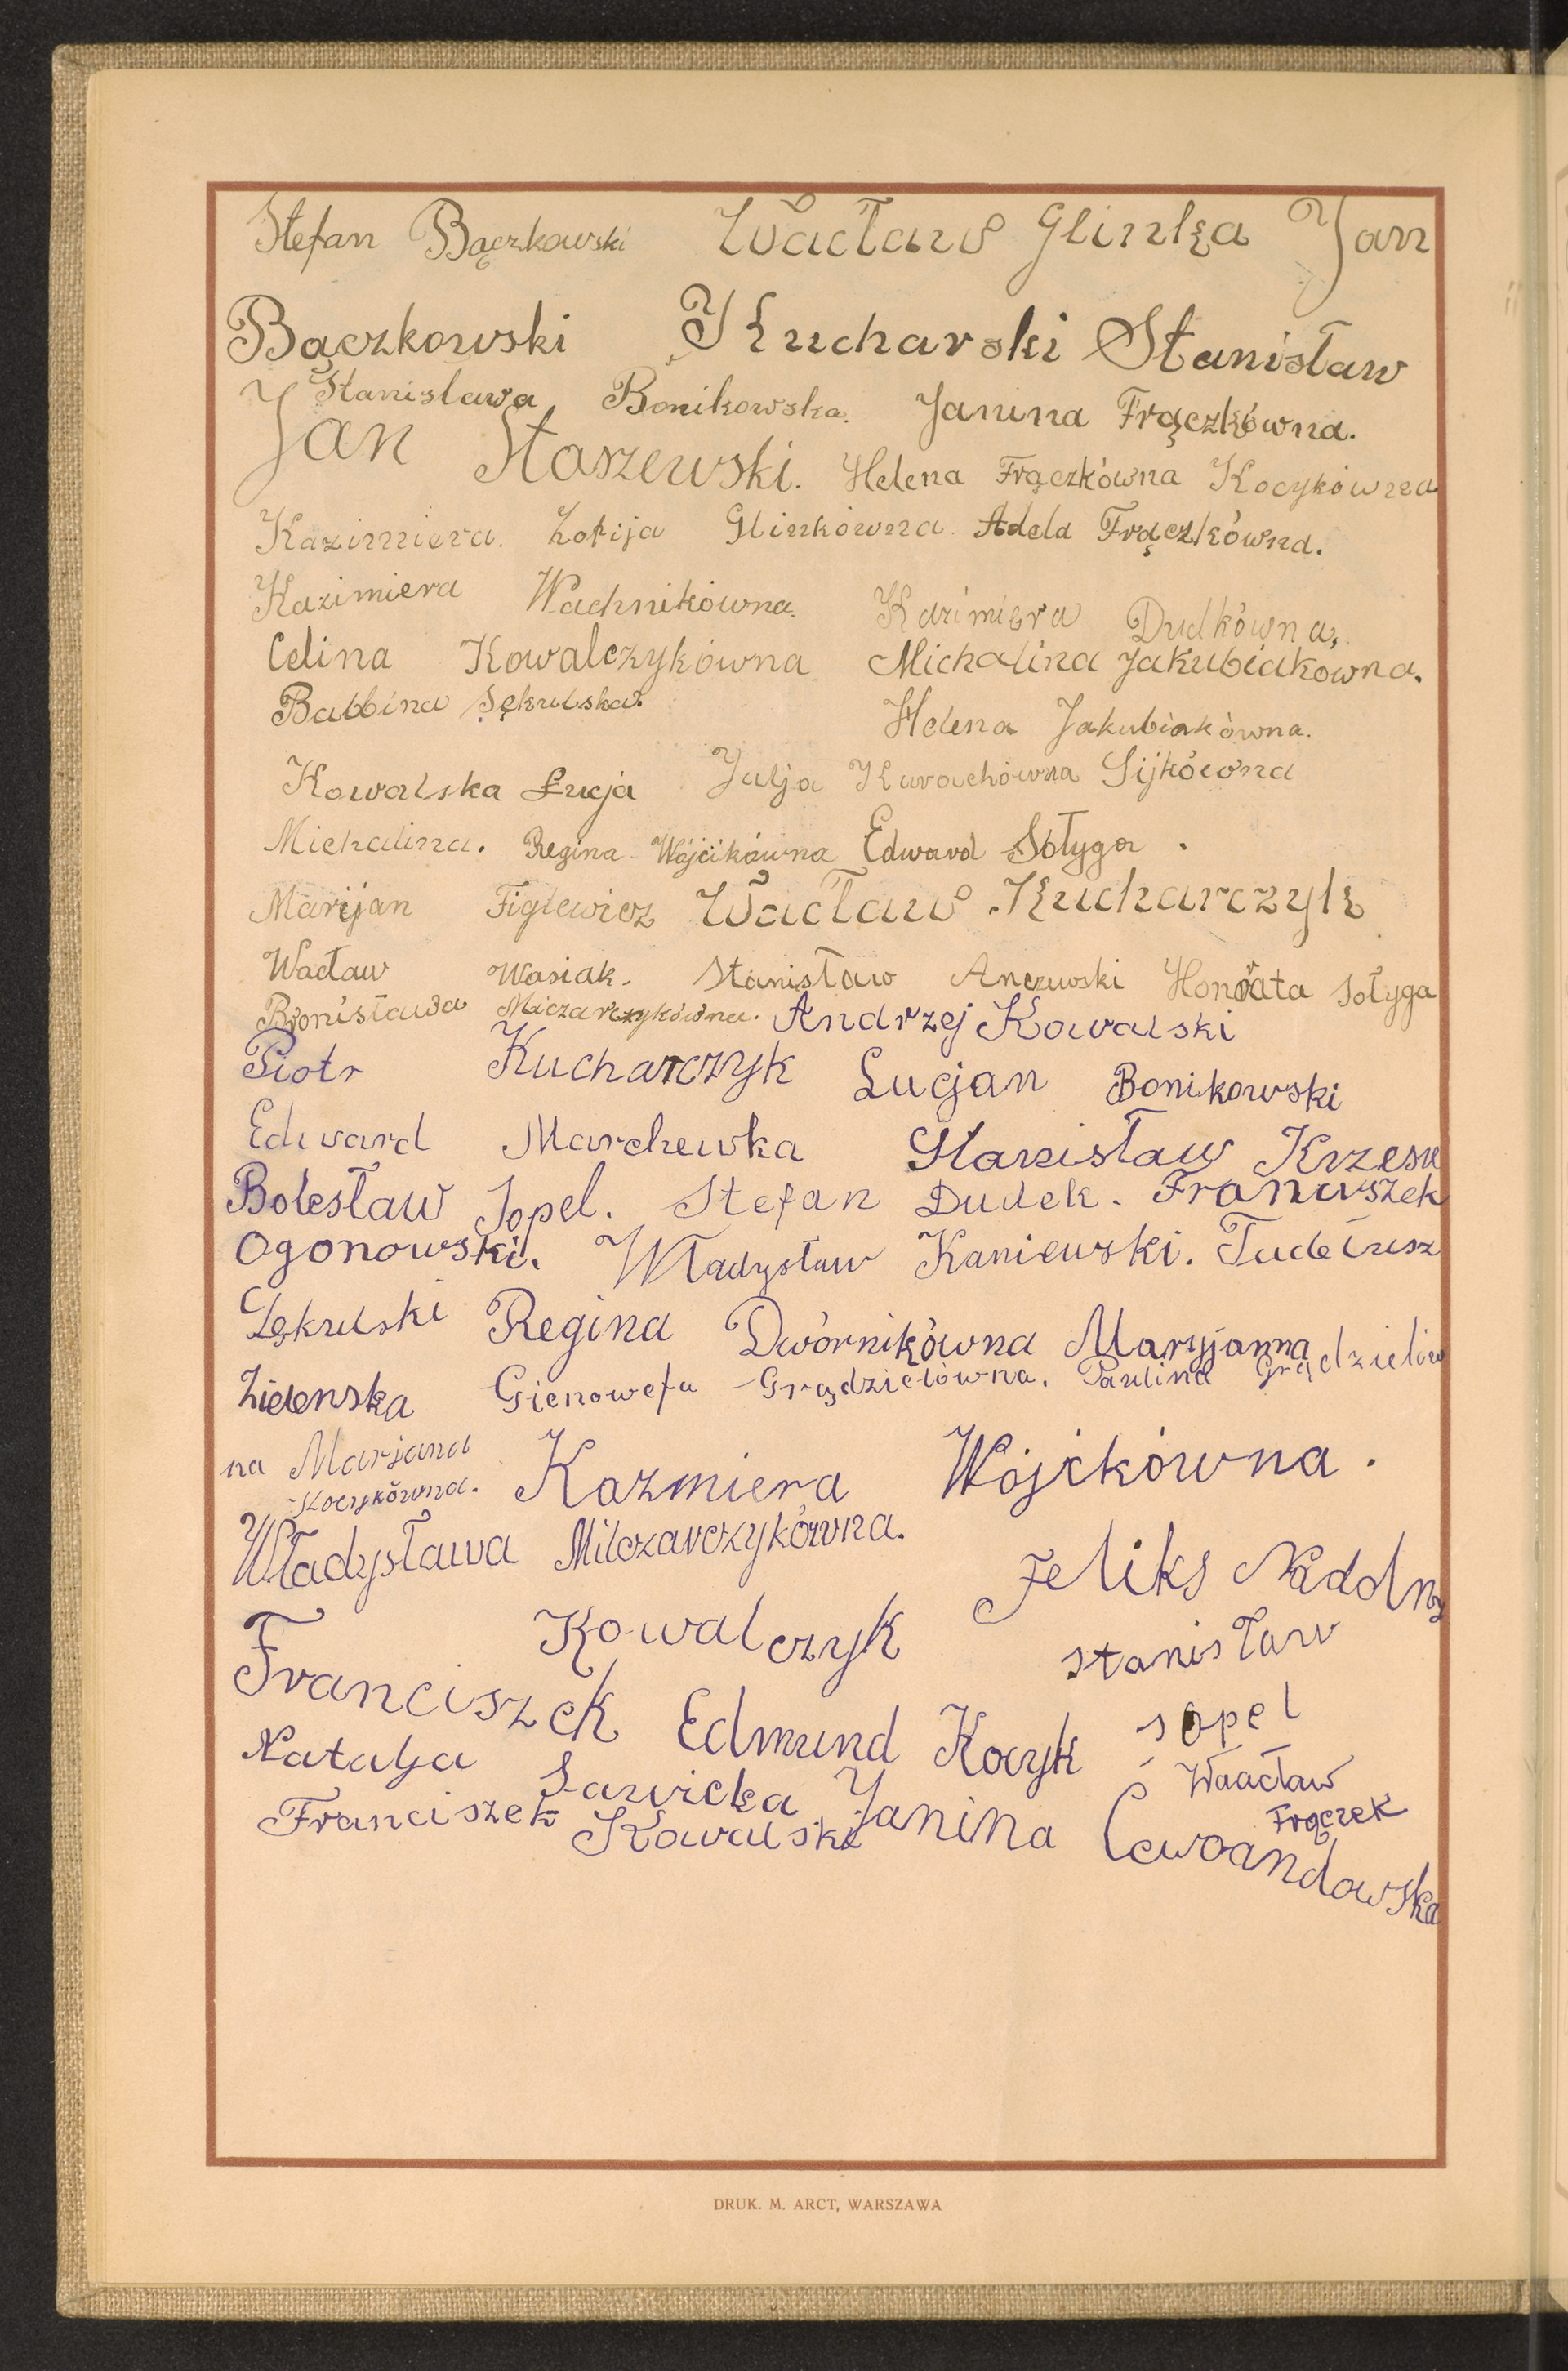 Stefan Bączkowski Wacław Glinka Jan
Bączkowski Kucharski Stanisław
Stanisława Bonikowska. Janina Frączkówna.
Jan Staszewski. Helena Frączkówna Kocykówna
Kazimiera. Zofija Glinkówna. Adela Frączkówna.
Kazimiera Wachnikówna. Kazimiera Dudkówna,
Celina Kowalczykówna Michalina Jakubiakówna.
Balbina Sękulska. Helena Jakubiakówna.
Kowalska Łucja Julja Kurachówna Sijkówna
Michalina. Regina Wójcikówna Edward Sołyga .
Marijan Figlewicz Wacław Kucharczyk
Wacław Wasiak. Stanisław Anczewski Honorata Sołyga
Bronisława Andrzej Kowalski
Piotr Kucharczyk Lucjan Bonikowski
Edward Marchewka Stanisław Krzesu
Bolesław Sopel. Stefan Dudek. Franciszek
Ogonowski. Władysław Kaniewski. Tadeusz
Regina Dwórnikówna Maryjanna
Zielenska Gienowefa Grądzielówna. Paulina Grądzielów
na Marjana
Kocykówna. Kazmiera Wójcikówna .
Władysława Milczarczykówna.
Feliks Nadolny
Franciszek Kowalczyk Stanisław
Edmund Kocyk Sopel
Natalja Sawicka Waacław
Franciszek Kowalski Janina Frączek
Lewoandowska
DRUK. M. ARCT, WARSZAWA